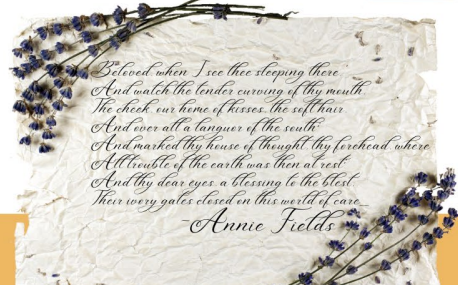 Beloved, when I see thee sleeping there
And watch the tender curving of thy mouth
The cheek, our home of kisses, the soft hair
And over all a languor of the south;
And marked thy house of thought, thy forehead, where
All trouble of the earth was then at rest;
And thy dear eyes, a blessing to the blest,
Their ivory gates closed on this world of care_
-Annie Fields